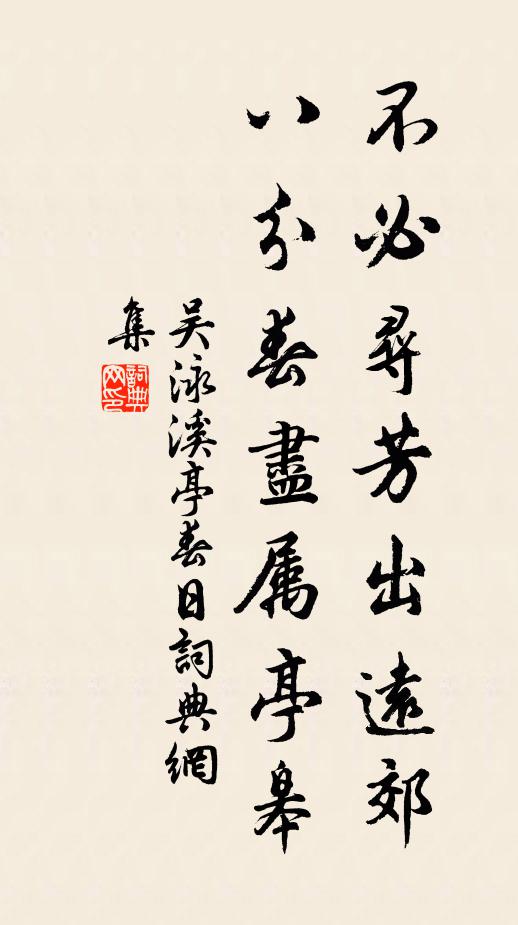 不必尋芳出遠郊
八分春盡属亭皋
吴泳溪亭春日詞典網
集
詞典网印